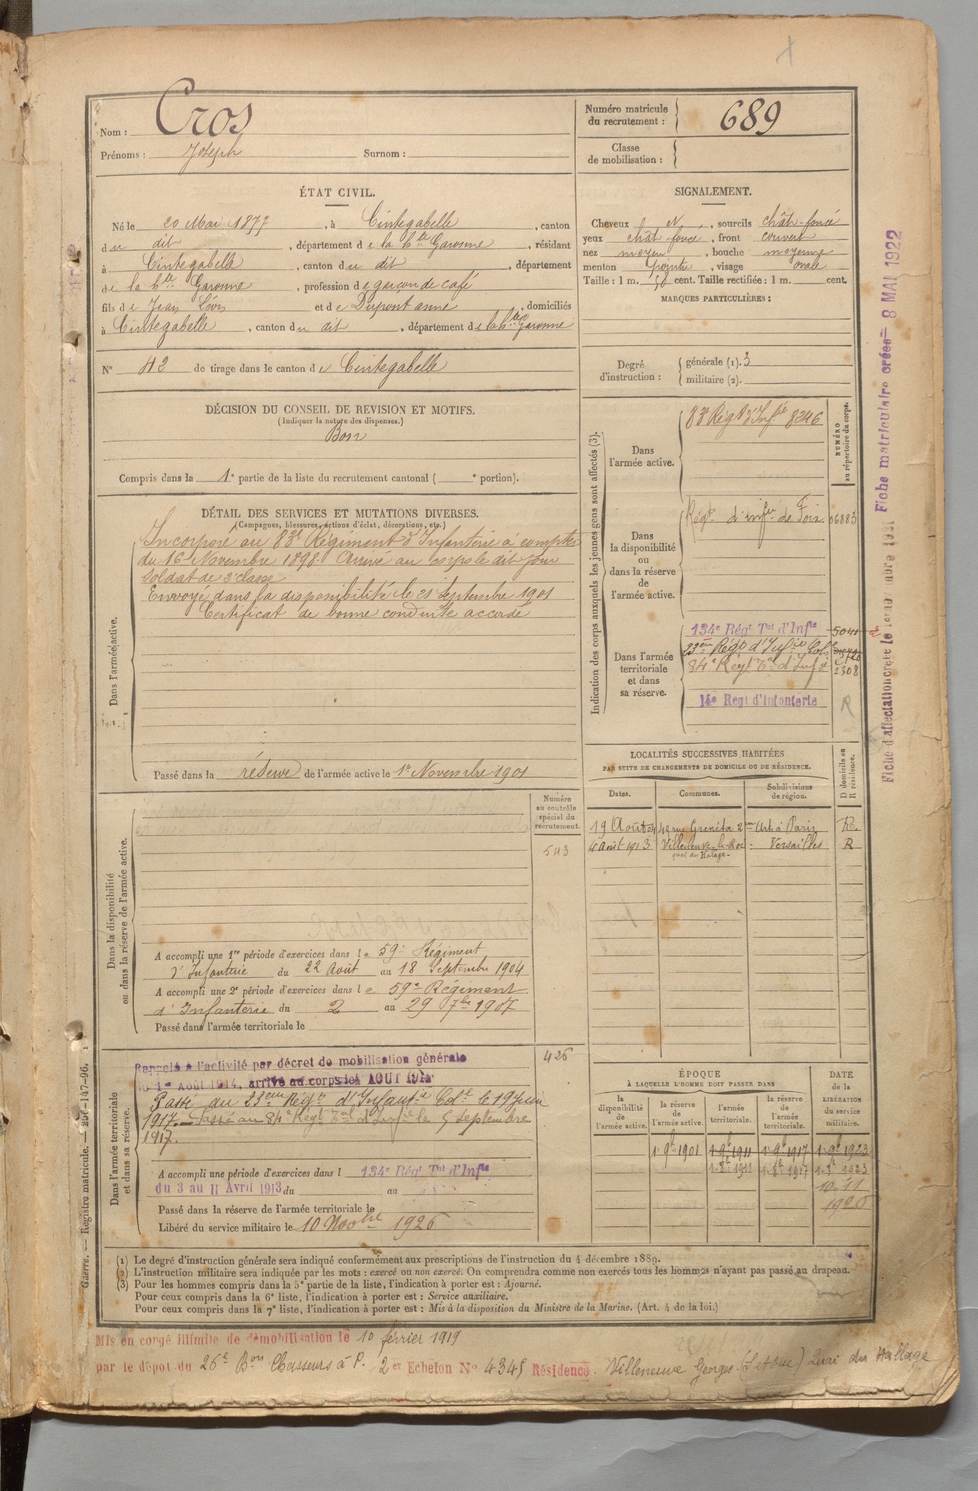 Nom : Cros
Prénoms : Joseph Surnom :
Numéro matricule du recrutement : 689
Classe de mobilisation :
ÉTAT CIVIL.
Né le 20 Mai 1877, à Cintegabelle, canton
du dit, département de la hte Garonne, résidant
à Cintegabelle, canton du dit, département
de la hte Garonne, profession de garçon de café
fils de Jean Lévis et de Dupont anne, domiciliés
à Cintegabelle, canton du dit, département de la hte Garonne
N° 42 de tirage dans le canton de Cintegabelle
SIGNALEMENT.
Cheveux N, sourcils chât-foncé
yeux chât foncé, front couvert
nez moyen, bouche moyenne
menton pointu, visage ovale
Taille : 1 m. 58 cent. Taille rectifiée : 1 m. cent.
MARQUES PARTICULIÈRES :
Degré d'instruction : générale (1). 3
militaire (2).
DÉCISION DU CONSEIL DE REVISION ET MOTIFS.
(Indiquer la nature des dispenses.)
Bon
Compris dans la 1e partie de la liste du recrutement cantonal ( e portion).
DÉTAIL DES SERVICES ET MUTATIONS DIVERSES.
(Campagnes, blessures, actions d'éclat, décorations, etc.)
Dans l'armée active.
Incorporé au 83e Régiment d'Infanterie à compter
du 16 Novembre 1898. Arrivé au corps le dit jour
soldat de 2e classe
Envoyé dans la disponibilité le 21 Septembre 1901
Certificat de bonne conduite accordé
Passé dans la réserve de l'armée active le 1er Novembre 1901
Indication des corps auxquels les jeunes gens sont affectés (3).
NUMÉRO au répertoire du corps.
Dans l'armée active.
83e Rég. d'Infie 8246
Dans la disponibilité ou dans la réserve de l'armée active.
Régt d'infie de Foix 06883
Dans l'armée territoriale et dans sa réserve.
134e Régt Tal d'Infie 5041
23eme Régt d'Infie Cole
84e Régt Tal d'Infie 2308
14e Régt d'Infanterie R
LOCALITÉS SUCCESSIVES HABITÉES
PAR SUITE DE CHANGEMENTS DE DOMICILE OU DE RÉSIDENCE.
D domicile ou R résidence.
Dates. Communes. Subdivisions de région.
19 Août 04 49 rue Greneta 2me Art à Paris R.
4 août 1913 Villeneuve-le-Roi Versailles R
quai du Halage
Numéro au contrôle spécial du recrutement.
543
Dans la disponibilité ou dans la réserve de l'armée active.
A accompli une 1re période d'exercices dans le 59e Régiment
d'Infanterie du 22 Août au 18 Septembre 1904
A accompli une 2e période d'exercices dans le 59e Régiment
d'Infanterie du 2 au 29 7bre 1907
Passé dans l'armée territoriale le
Dans l'armée territoriale et dans sa réserve.
426
Rappelé à l'activité par décret de mobilisation générale
du 1er Août 1914, arrivé au corps le AOUT 1914
Passé au 23eme Régt d'Infantie Cole le 19 juin
1917. Passé au 84e Régt Tal d'Infie le 5 septembre
1917.
A accompli une période d'exercices dans l 134e Régt Tal d'Infie
du 3 au 11 Avril 1913 du au
Passé dans la réserve de l'armée territoriale le
Libéré du service militaire le 10 Novbre 1926
ÉPOQUE
À LAQUELLE L'HOMME DOIT PASSER DANS
DATE de la LIBÉRATION du service militaire.
la disponibilité de l'armée active. la réserve de l'armée active. l'armée territoriale. la réserve de l'armée territoriale.
1 9e 1901 1 9e 1911 1 9e 1917 1 9e 1923
1-8e 1911 1-8e 1917 1-8e 1923
10-11
1926
(1) Le degré d'instruction générale sera indiqué conformément aux prescriptions de l'instruction du 4 décembre 1889.
(2) L'instruction militaire sera indiquée par les mots : exercé ou non exercé. On comprendra comme non exercés tous les hommes n'ayant pas passé au drapeau.
(3) Pour les hommes compris dans la 5e partie de la liste, l'indication à porter est : Ajourné.
Pour ceux compris dans la 6e liste, l'indication à porter est : Service auxiliaire.
Pour ceux compris dans la 7e liste, l'indication à porter est : Mis à la disposition du Ministre de la Marine. (Art. 4 de la loi.)
Mis en congé illimité de démobilisation le 10 février 1919
par le dépôt du 26e Bon Chasseurs à P. 2er Echelon N° 4345 Résidence Villeneuve Georges (S et Oise) Quai du Hallage
Guerre. — Registre matricule. — 250-147-96.
Fiche matriculaire créée 8 MAI 1922
Fiche d'affectation créée le